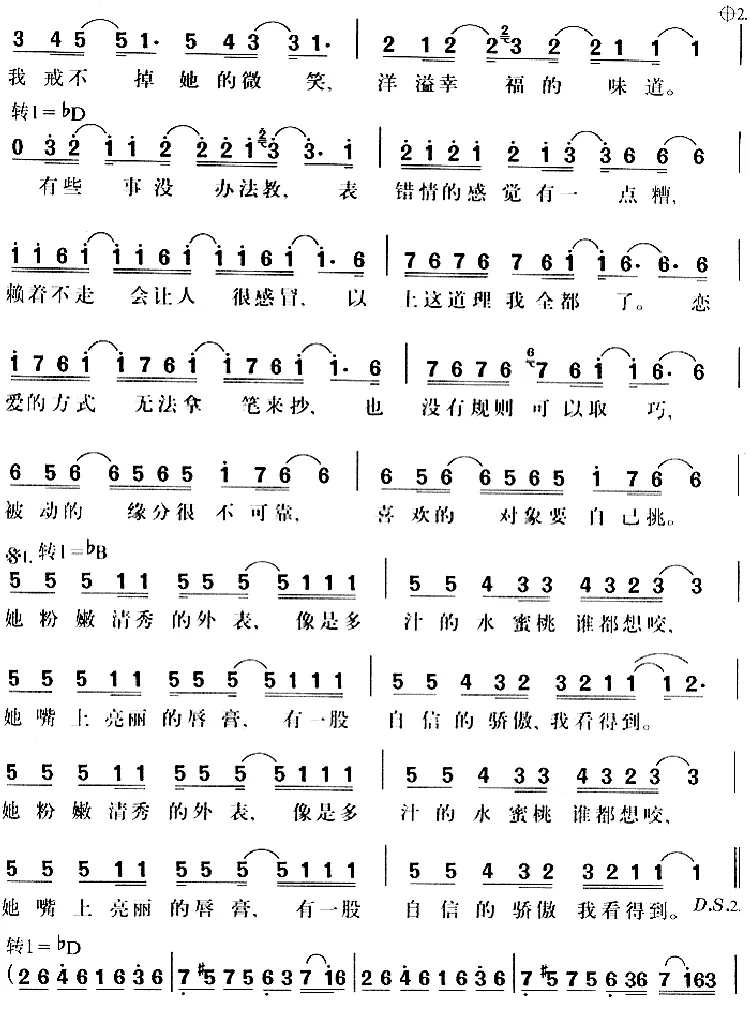 𝄌2.
3 4 5 5 1· 5 4 3 3 1· | 2 1 2 2 3 2 2 2 1 1 1
我戒不 掉她的微 笑, 洋溢幸 福的 味道。
转1=♭D
0 3 2 1 1 2 2 2 1 3 3· 1 | 2 1 2 1 2 1 3 3 6 6 6
有些 事没 办法教, 表 错情的感觉有一 点糟,
1 1 6 1 1 1 6 1 1 1 6 1 1· 6 | 7 6 7 6 7 6 1 1 6· 6· 6
赖着不走 会让人 很感冒, 以 上这道理我全都 了。恋
1 7 6 1 1 7 6 1 1 7 6 1 1· 6 | 7 6 7 6 7 6 1 1 6· 6
爱的方式 无法拿 笔来抄, 也 没有规则可以取 巧,
6 5 6 6 5 6 5 1 7 6 6 | 6 5 6 6 5 6 5 1 7 6 6
被动的 缘分很不可靠, 喜欢的 对象要自己挑。
𝄋1. 转1=♭B
5 5 5 1 1 5 5 5 5 1 1 1 | 5 5 4 3 3 4 3 2 3 3
她粉嫩清秀的外表, 像是多 汁的水蜜桃谁都想咬,
5 5 5 1 1 5 5 5 5 1 1 1 | 5 5 4 3 2 3 2 1 1 1 2·
她嘴上亮丽的唇膏, 有一股 自信的骄傲、我看得到。
5 5 5 1 1 5 5 5 5 1 1 1 | 5 5 4 3 3 4 3 2 3 3
她粉嫩清秀的外表, 像是多 汁的水蜜桃谁都想咬,
5 5 5 1 1 5 5 5 5 1 1 1 | 5 5 4 3 2 3 2 1 1 1
她嘴上亮丽的唇膏, 有一股 自信的骄傲我看得到。 D.S.2.
转1=♭D
(2 6 4 6 1 6 3 6 | 7 #5 7 5 6 3 7 1 6 | 2 6 4 6 1 6 3 6 | 7 #5 7 5 6 3 6 7 1 6 3 |